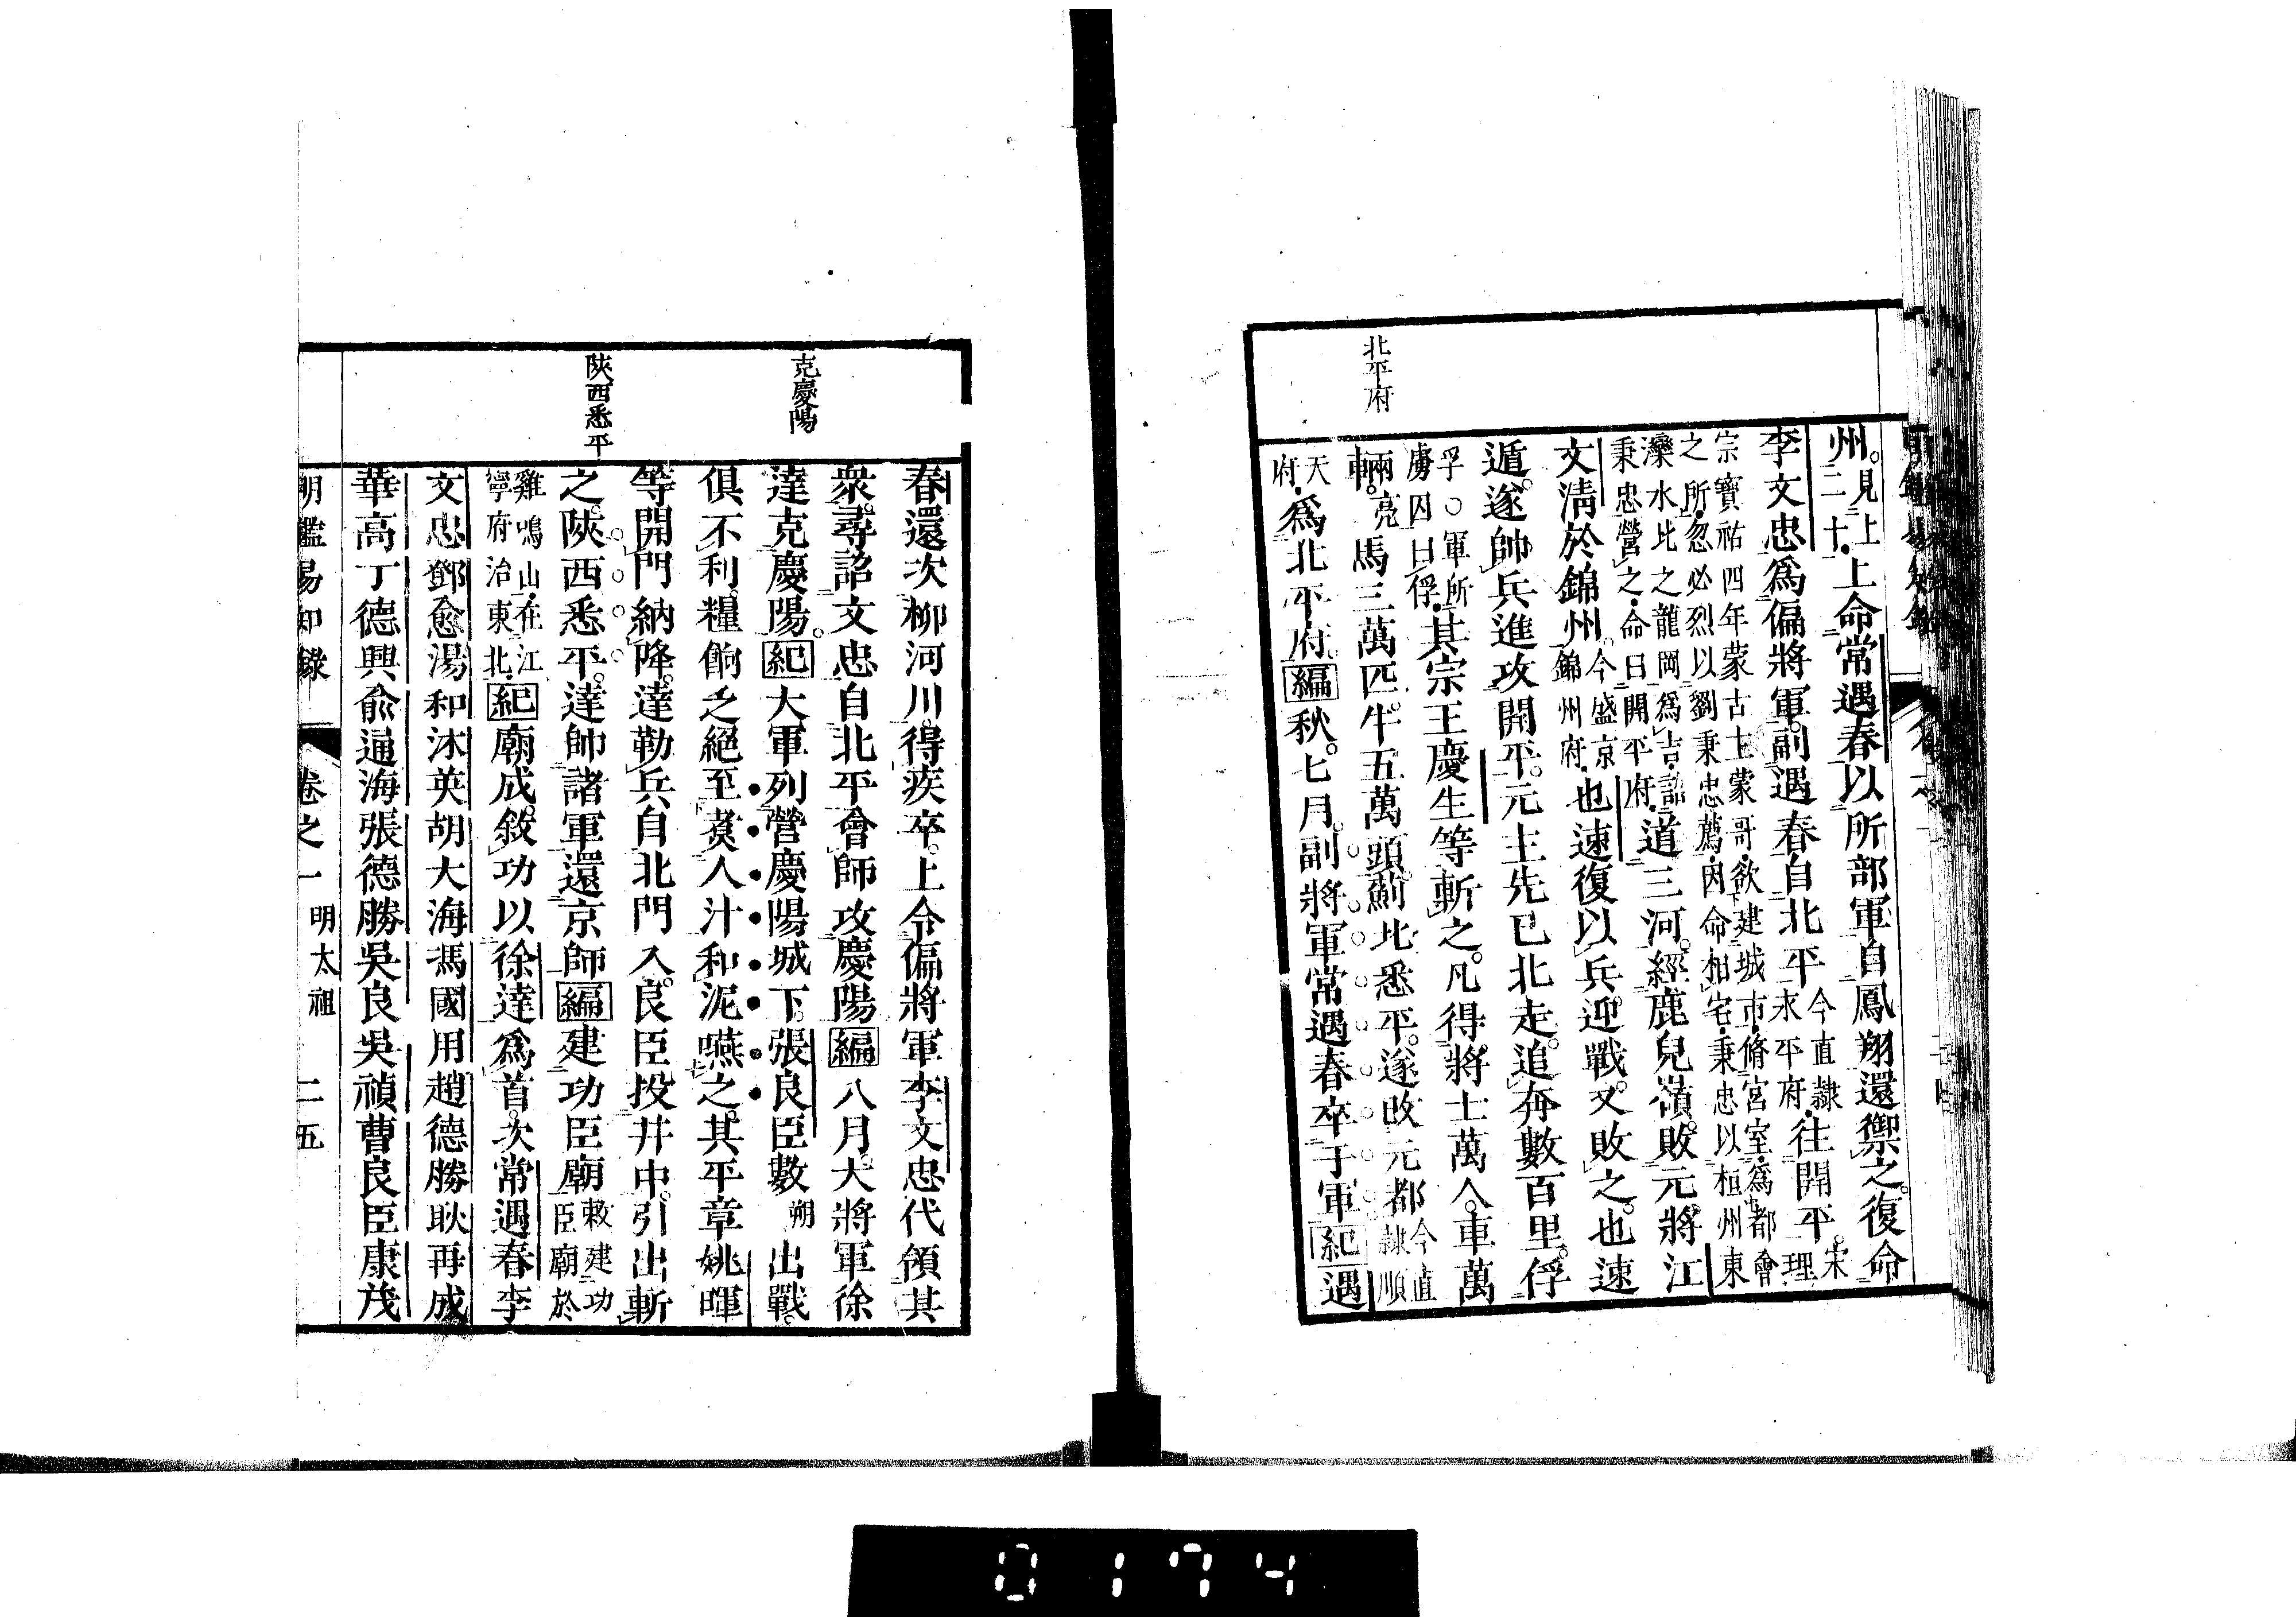 北平府
州。見上二十。上命常遇春以所部軍自鳳翔還禦之。復命
李文忠爲偏將軍。副遇春自北平今直隸永平府。往開平。宋理
宗寶祐四年蒙古主蒙哥欲建城市脩宮室爲都會之所忽必烈以劉秉忠薦因命相宅秉忠以桓州東
灤水北之龍岡爲吉詔秉忠營之命曰開平府道三河。經鹿兒嶺。敗元將江
文淸於錦州。今盛京錦州府也速復以兵迎戰。又敗之。也速
遁。遂帥兵進攻開平。元主先已北走。追奔數百里。俘
孚○軍所虜囚曰俘其宗王慶生等斬之。凡得將士萬人。車萬
輛。兩亮馬三萬匹。牛五萬頭。薊北悉平。遂改元都今直隸順
天府爲北平府。編秋。七月。副將軍常遇春卒于軍紀遇
克慶陽
陝西悉平
春還次柳河川。得疾卒。上令偏將軍李文忠代領其
衆。尋詔文忠自北平會師攻慶陽編八月。大將軍徐
達克慶陽。紀大軍列營慶陽城下。張良臣數朔出戰。
俱不利。糧餉乏絕至煑人汁和泥嚥之。其平章姚暉
等開門納降。達勒兵自北門入。良臣投井中。引出斬
之。陝西悉平。達帥諸軍還京師編建功臣廟敕建功臣廟於
雞鳴山在江寧府治東北紀廟成。敘功以徐達爲首。次常遇春李
文忠鄧愈湯和沐英胡大海馮國用趙德勝耿再成
華高丁德興俞通海張德勝吳良吳禎曹良臣康茂
明鑑易知錄 卷之一 明太祖 二五
0174